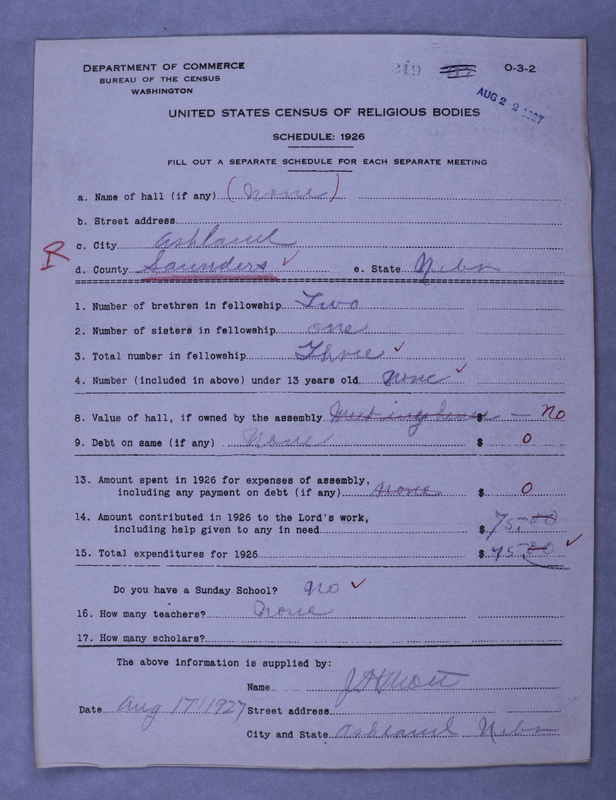 DEPARTMENT OF COMMERCE
BUREAU OF THE CENSUS
WASHINGTON
219
O-3-2
AUG 22 1927
UNITED STATES CENSUS OF RELIGIOUS BODIES
SCHEDULE: 1926
FILL OUT A SEPARATE SCHEDULE FOR EACH SEPARATE MEETING
a. Name of hall (if any) (none)
b. Street address
R
c. City Ashland
d. County Saunders ✓ e. State Nebr
1. Number of brethren in fellowship Two
2. Number of sisters in fellowship one
3. Total number in fellowship Three ✓
4. Number (included in above) under 13 years old none ✓
8. Value of hall, if owned by the assembly $ — no
9. Debt on same (if any) None $ 0
13. Amount spent in 1926 for expenses of assembly,
including any payment on debt (if any) none $ 0
14. Amount contributed in 1926 to the Lord's work,
including help given to any in need $ 75.00
15. Total expenditures for 1926 $ 75.00 ✓
Do you have a Sunday School? no ✓
16. How many teachers? none
17. How many scholars?
The above information is supplied by:
Name J H Mott
Date Aug 17 1927 Street address
City and State Ashland Nebr